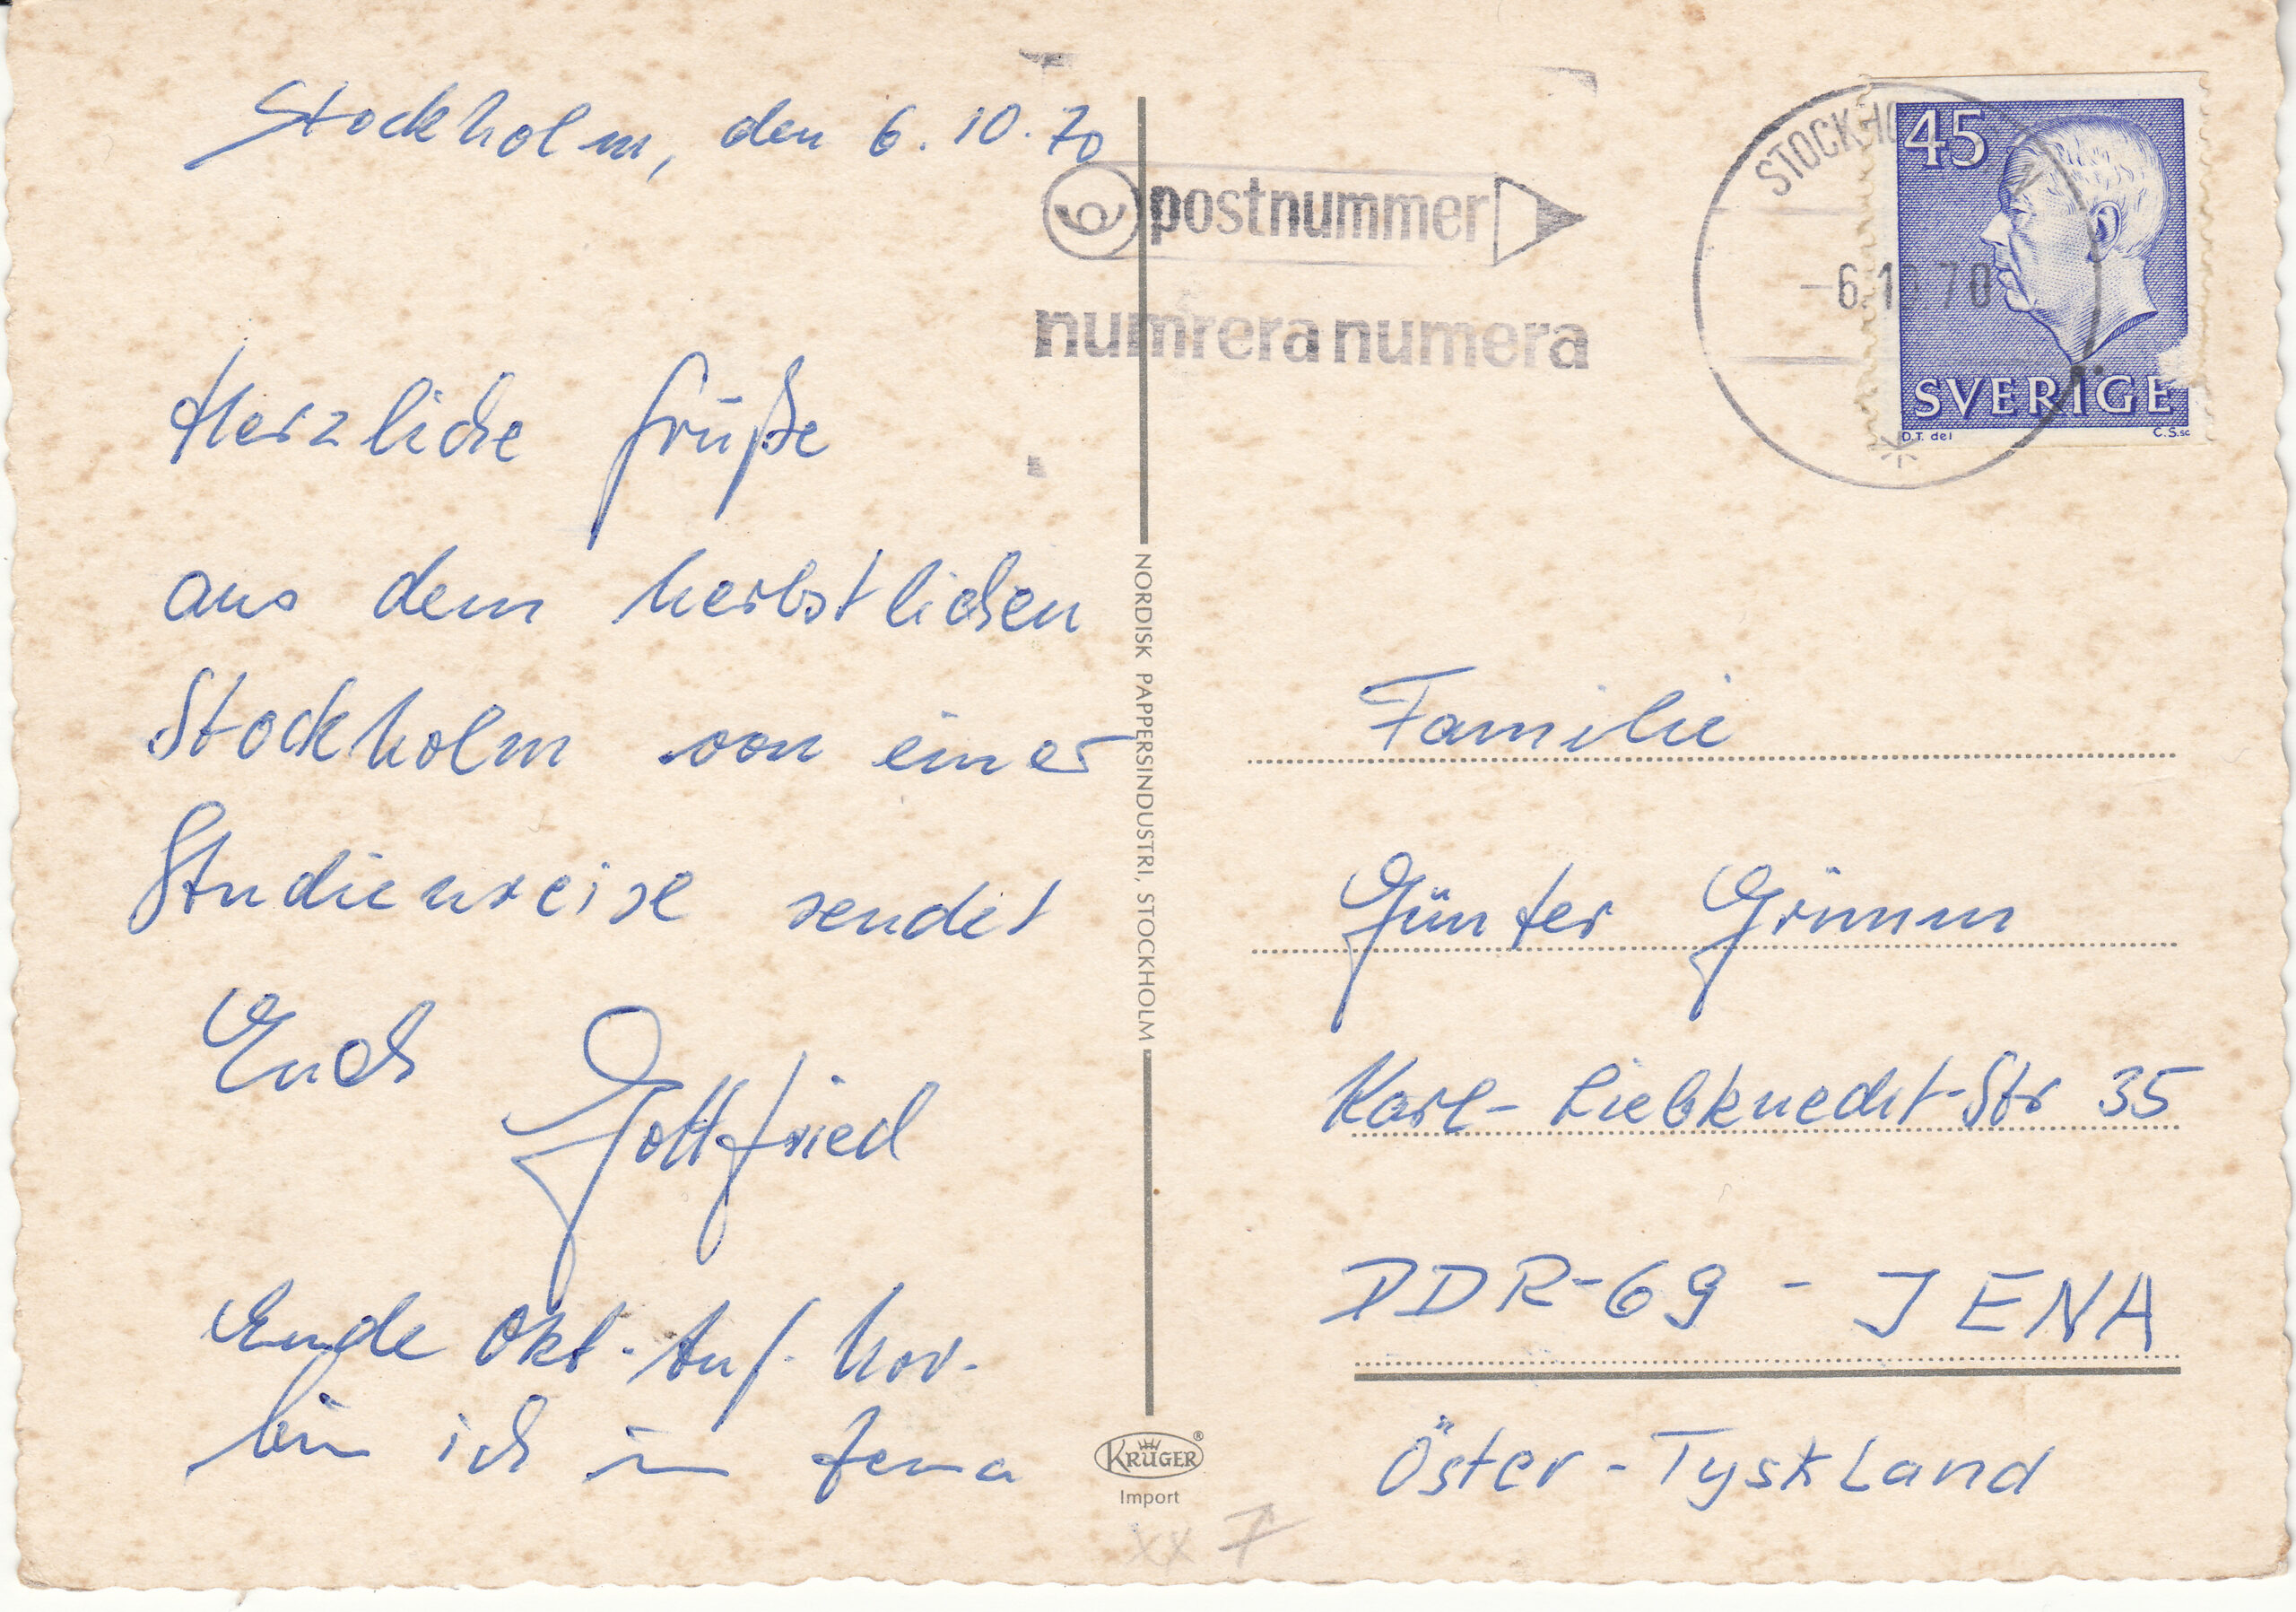 Stockholm, den 6.10.70
Herzliche Grüße
aus dem herbstlichen
Stockholm von einer
Studienreise sendet
Euch Gottfried
Ende Okt.-Anf. Nov.
bin ich in Jena
postnummer
numrera numera
STOCKHO
-6.1 70
45
SVERIGE
D.T. del C.S.sc
NORDISK PAPPERSINDUSTRI, STOCKHOLM
Familie
Günter Grimm
Karl-Liebknecht-Str 35
DDR-69 - JENA
Öster-Tyskland
KRÜGER®
Import
xx 7